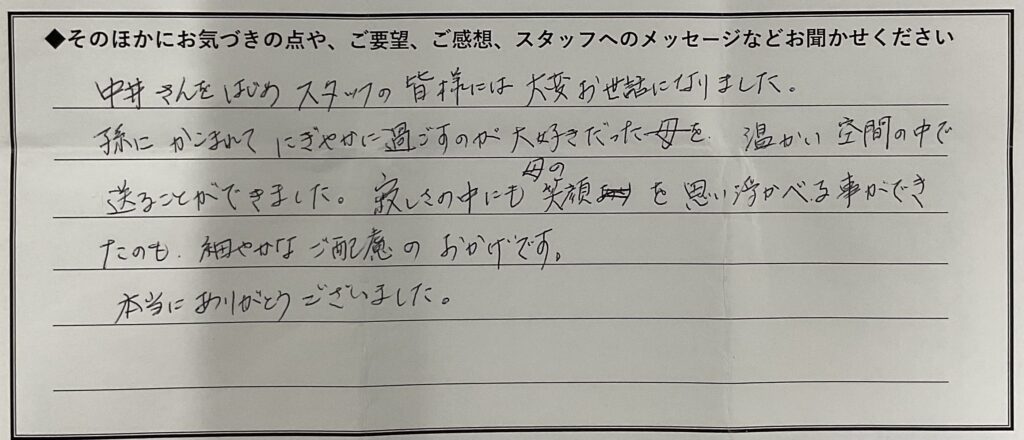 ◆そのほかにお気づきの点や、ご要望、ご感想、スタッフへのメッセージなどお聞かせください
中井さんをはじめ スタッフの皆様には 大変お世話になりました。
孫に かこまれて にぎやかに過ごすのが 大好きだった母を 温かい空間の中で
送ることができました。寂しさの中にも母の笑顔を思い浮かべる事ができ
たのも、細やかなご配慮のおかげです。
本当にありがとうございました。